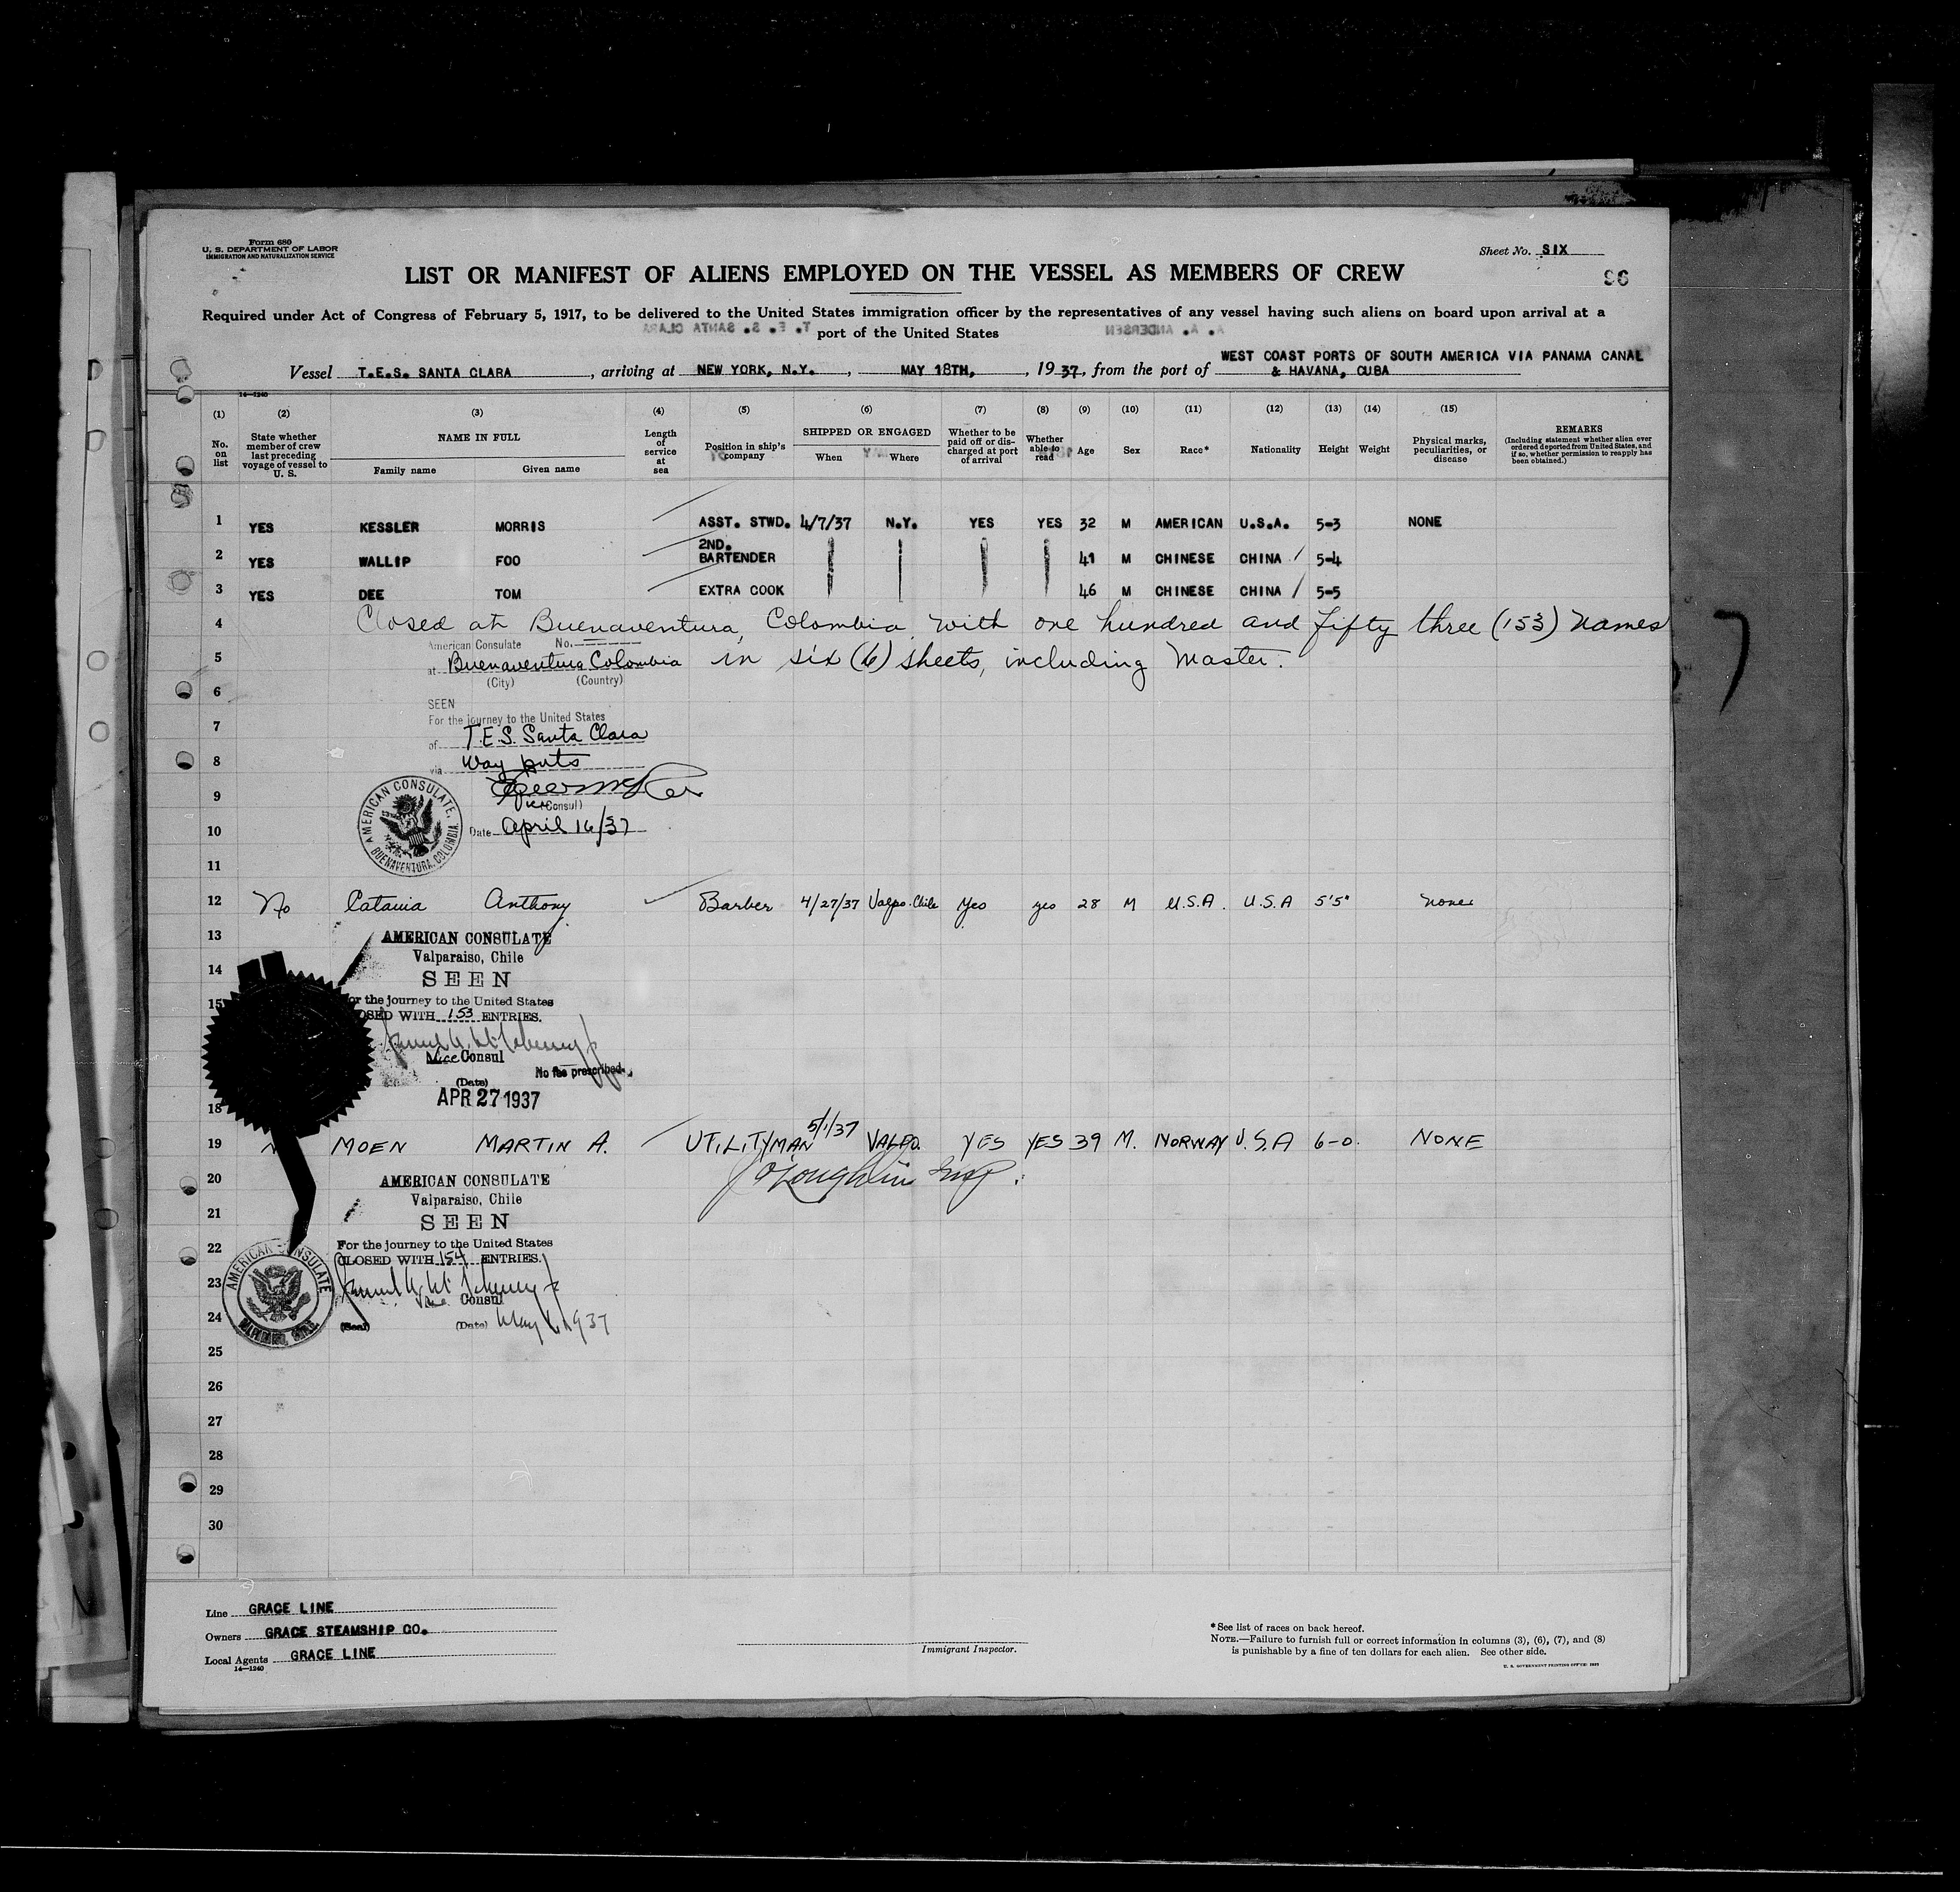 Form 680
U. S. DEPARTMENT OF LABOR
IMMIGRATION AND NATURALIZATION SERVICE
Sheet No. SIX
96
LIST OR MANIFEST OF ALIENS EMPLOYED ON THE VESSEL AS MEMBERS OF CREW
Required under Act of Congress of February 5, 1917, to be delivered to the United States immigration officer by the representatives of any vessel having such aliens on board upon arrival at a
port of the United States
T. E. S. SANTA CLARA
A. A. ANDERSEN
Vessel T.E.S. SANTA CLARA, arriving at NEW YORK, N.Y., MAY 18TH, 1937, from the port of WEST COAST PORTS OF SOUTH AMERICA VIA PANAMA CANAL
& HAVANA, CUBA
14—1240
(1) (2) (3) (4) (5) (6) (7) (8) (9) (10) (11) (12) (13) (14) (15)
No. on list
State whether member of crew last preceding voyage of vessel to U. S.
NAME IN FULL
Family name Given name
Length of service at sea
Position in ship's company
SHIPPED OR ENGAGED
When Where
Whether to be paid off or discharged at port of arrival
Whether able to read
Age Sex Race* Nationality Height Weight
Physical marks, peculiarities, or disease
REMARKS
(Including statement whether alien ever ordered deported from United States, and if so, whether permission to reapply has been obtained.)
1 YES KESSLER MORRIS ASST. STWD. 4/7/37 N.Y. YES YES 32 M AMERICAN U.S.A. 5-3 NONE
2 YES WALLIP FOO 2ND. BARTENDER 41 M CHINESE CHINA 5-4
3 YES DEE TOM EXTRA COOK 46 M CHINESE CHINA 5-5
4 Closed at Buenaventura, Colombia with one hundred and fifty three (153) names
5 in six (6) sheets, including Master.
American Consulate No.
at Buenaventura Colombia
(City) (Country)
6
SEEN
7 For the journey to the United States
of T.E.S. Santa Clara
8 via way ports
9
Vice Consul)
10 Date April 16/37
AMERICAN CONSULATE, BUENAVENTURA, COLOMBIA.
11
12 No Catania Anthony Barber 4/27/37 Valpo. Chile Yes yes 28 M U.S.A. U.S.A 5'5" none
13 AMERICAN CONSULATE
Valparaiso, Chile
14 SEEN
15 For the journey to the United States
CLOSED WITH 153 ENTRIES.
Vice Consul
No fee prescribed.
(Date)
APR 27 1937
18
19 MOEN MARTIN A. UTILITYMAN 5/1/37 VALPO. YES YES 39 M. NORWAY U.S.A 6-0. NONE
20 O'Loughlin Insp.
AMERICAN CONSULATE
Valparaiso, Chile
21 SEEN
22 For the journey to the United States
CLOSED WITH 154 ENTRIES.
23
Vice Consul
24 (Seal) (Date) May 1, 1937
AMERICAN CONSULATE
25
26
27
28
29
30
Line GRACE LINE
Owners GRACE STEAMSHIP CO.
Local Agents GRACE LINE
14—1240
Immigrant Inspector.
*See list of races on back hereof.
NOTE.—Failure to furnish full or correct information in columns (3), (6), (7), and (8)
is punishable by a fine of ten dollars for each alien. See other side.
U. S. GOVERNMENT PRINTING OFFICE: 1935
7